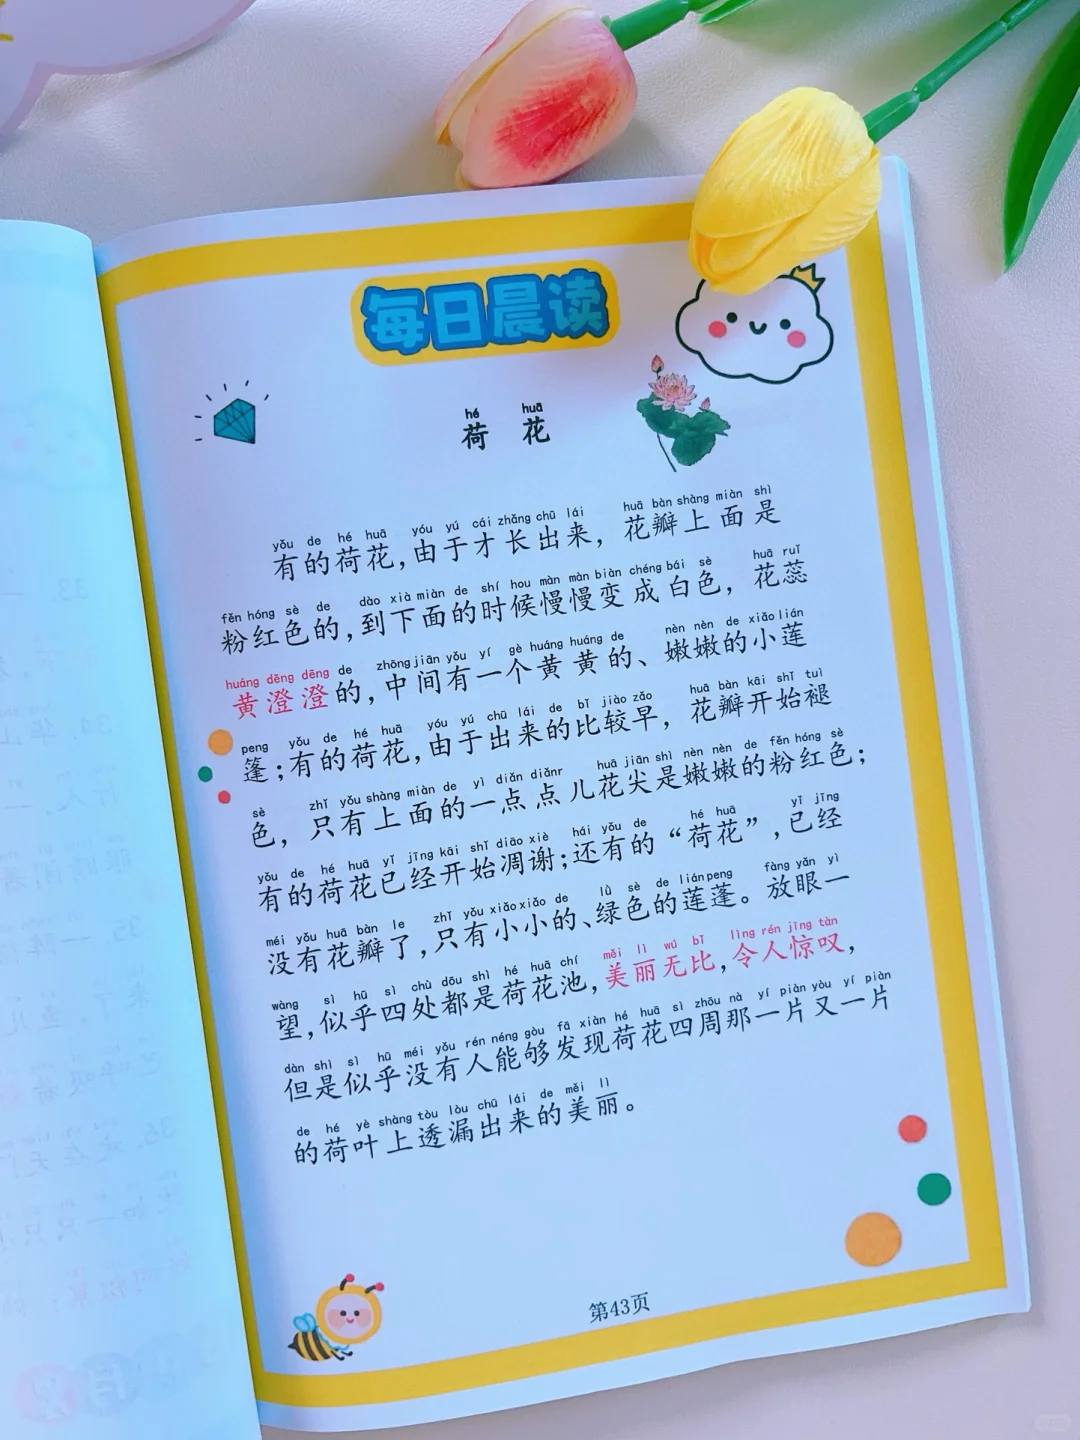 每日晨读
hé huā
荷 花
yǒu de hé huā yóu yú cái zhǎng chū lái huā bàn shàng miàn shì
有的荷花，由于才长出来，花瓣上面是
fěn hóng sè de dào xià miàn de shí hou màn màn biàn chéng bái sè huā ruǐ
粉红色的，到下面的时候慢慢变成白色，花蕊
huáng dēng dēng de zhōng jiān yǒu yí gè huáng huáng de nèn nèn de xiǎo lián
黄澄澄的，中间有一个黄黄的、嫩嫩的小莲
peng yǒu de hé huā yóu yú chū lái de bǐ jiào zǎo huā bàn kāi shǐ tuì
篷；有的荷花，由于出来的比较早，花瓣开始褪
sè zhǐ yǒu shàng miàn de yì diǎn diǎnr huā jiān shì nèn nèn de fěn hóng sè
色，只有上面的一点点儿花尖是嫩嫩的粉红色；
yǒu de hé huā yǐ jīng kāi shǐ diāo xiè hái yǒu de hé huā yǐ jīng
有的荷花已经开始凋谢；还有的“荷花”，已经
méi yǒu huā bàn le zhǐ yǒu xiǎo xiǎo de lǜ sè de lián peng fàng yǎn yì
没有花瓣了，只有小小的、绿色的莲蓬。放眼一
wàng sì hū sì chù dōu shì hé huā chí měi lì wú bǐ lìng rén jīng tàn
望，似乎四处都是荷花池，美丽无比，令人惊叹，
dàn shì sì hū méi yǒu rén néng gòu fā xiàn hé huā sì zhōu nà yí piàn yòu yí piàn
但是似乎没有人能够发现荷花四周那一片又一片
de hé yè shàng tòu lòu chū lái de měi lì
的荷叶上透漏出来的美丽。
第43页